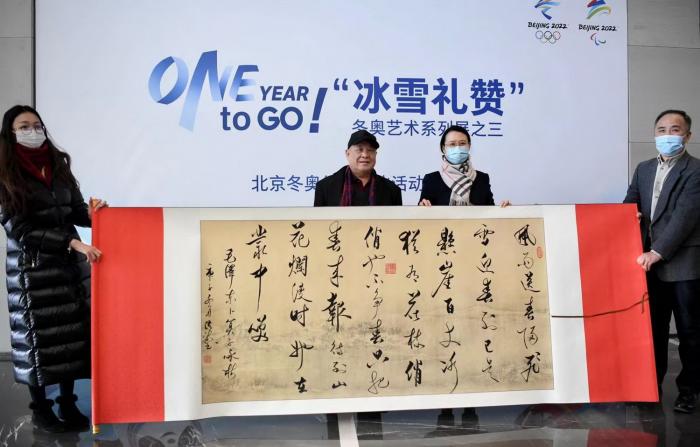 BEIJING 2022
BEIJING 2022
ONE YEAR
to GO!
“冰雪礼赞”
冬奥艺术系列展之三
北京冬奥 活动
風雨送春歸飛
雪迎春到已是
懸崖百丈冰
猶有花枝俏
俏也不爭春只把
春来報待到山
花爛漫時她在
叢中笑
毛澤東卜算子咏梅